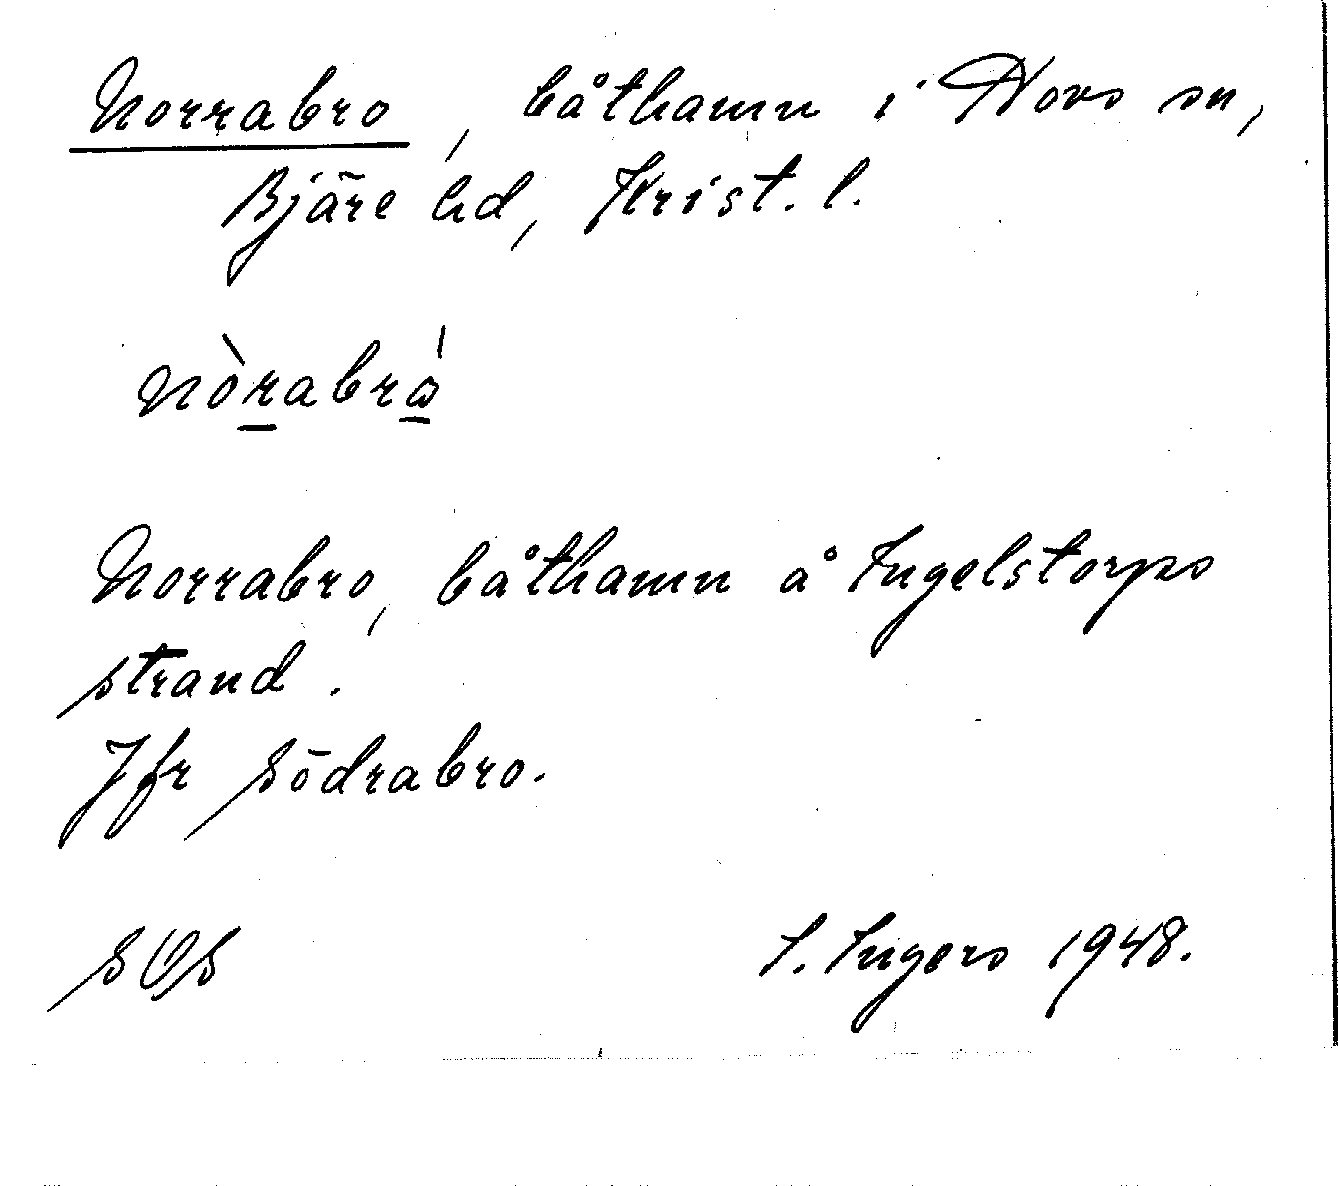 Norrabro, båthamn i Hovs sn,
Bjäre hd, Krist. l.
nòrabró
Norrabro, båthamn å Ingelstorps
strand.
Jfr Södrabro.
SOS I. Ingers 1948.